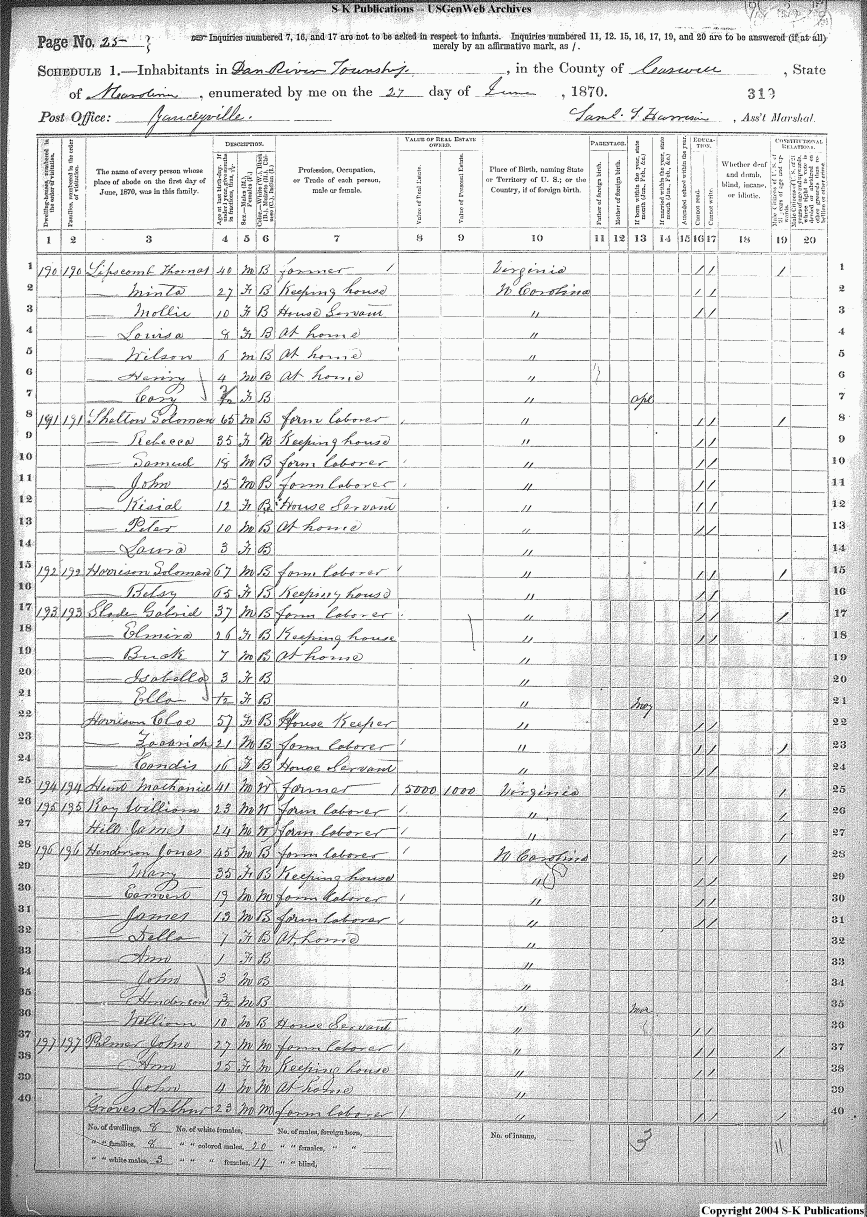 S-K Publications -- USGenWeb Archives
Page No. 25
Inquiries numbered 7, 16, and 17 are not to be asked in respect to infants. Inquiries numbered 11, 12, 15, 16, 17, 19, and 20 are to be answered (if at all)
merely by an affirmative mark, as /.
SCHEDULE 1.—Inhabitants in Dan River Township, in the County of Caswell, State
of N Carolina, enumerated by me on the 27 day of June, 1870. 313
Post Office: Yanceyville. Saml. S Harrison, Ass't Marshal.
DESCRIPTION. VALUE OF REAL ESTATE OWNED. PARENTAGE. EDUCATION. CONSTITUTIONAL RELATIONS.
Dwelling-houses, numbered in the order of visitation. Families, numbered in the order of visitation. The name of every person whose place of abode on the first day of June, 1870, was in this family. Profession, Occupation, or Trade of each person, male or female. Value of Real Estate. Value of Personal Estate. Place of Birth, naming State or Territory of U. S.; or the Country, if of foreign birth. Father of foreign birth. Mother of foreign birth. If born within the year, state month (Jan., Feb., &c.) If married within the year, state month (Jan., Feb., &c.) Attended school within the year. Cannot read. Cannot write. Whether deaf and dumb, blind, insane, or idiotic.
1 2 3 4 5 6 7 8 9 10 11 12 13 14 15 16 17 18 19 20
1 190 190 Lipscomb Thomas 40 M B farmer / Virginia / / / 1
2 — Minta 27 F B Keeping house N Carolina / / 2
3 — Mollie 10 F B House Servant " / / 3
4 — Louisa 8 F B At home " 4
5 — Wilson 6 m B At home " 5
6 — Henry 4 M B At home " 6
7 — Cary F B " Apl 7
8 191 191 Shelton Soloman 65 M B farm laborer / " / / / 8
9 — Rebecca 35 F B Keeping house " / / 9
10 — Samuel 18 M B farm laborer / " / / 10
11 — John 15 M B farm laborer / " / / 11
12 — Kisial 12 F B House Servant " / / 12
13 — Peter 10 M B At home " / / 13
14 — Laura 3 F B " 14
15 192 192 Harrison Soloman 67 M B farm laborer / " / / / 15
16 — Betsy 65 F B Keeping house " / / 16
17 193 193 Slade Gabriel 37 M B farm laborer / " / / / 17
18 — Elmira 26 F B Keeping house " / / 18
19 — Buck 7 M B At home " 19
20 — Isabella 3 F B " 20
21 — Ella F B " May 21
22 Harrison Cloe 57 F B House Keeper " / / 22
23 — 21 M B farm laborer / " / / / 23
24 — Candis 16 F B House Servant " / / 24
25 194 194 Hunt 41 M W farmer / 5000 1000 Virginia / 25
26 195 195 Ray William 23 M W farm laborer / " / 26
27 Hill James 24 M W farm laborer / " / 27
28 196 196 Henderson Jones 45 M B farm laborer / N Carolina / / / 28
29 — Mary 35 F B Keeping house " / / 29
30 — 19 M M farm laborer / " / / 30
31 — James 13 M B farm laborer / " / / 31
32 — Della 1 F B At home " 32
33 — Ann 1 F B " 33
34 — John 3 M B " 34
35 — Henderson M B " Mar 35
36 — William 10 M B House Servant " / / 36
37 197 197 Palmer John 27 M M farm laborer / " / / / 37
38 — Ann 25 F M Keeping house " / / 38
39 — John 4 M M At home " 39
40 Groves Arthur 23 M M farm laborer / " / / 40
No. of dwellings, 8 No. of white females, No. of males, foreign born, No. of insane, 3 11
" " families, 8 " " colored males, 20 " " females, " "
" " white males, 3 " " " females, 17 " " blind,
Copyright 2004 S-K Publications